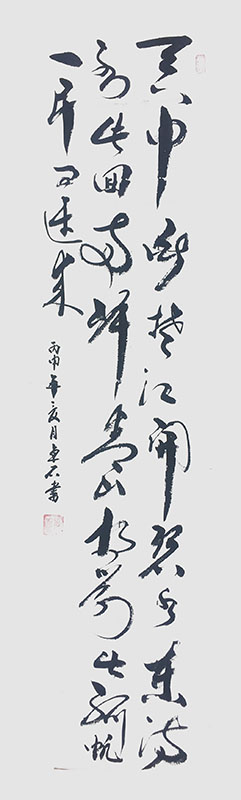 天門中断楚江開碧水東流
至此回两岸青山相對出孤帆
一片日边来
丙申年夏月石書